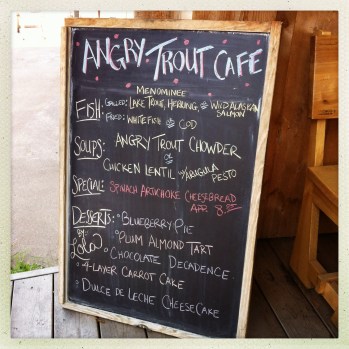 ANGRY TROUT CAFE
MENOMINEE
FISH: GRILLED: LAKE TROUT, HERRING, OR WILD ALASKAN SALMON
FRIED: WHITEFISH OR COD
SOUPS: ANGRY TROUT CHOWDER
OR
CHICKEN LENTIL W/ARUGULA PESTO
SPECIAL: SPINACH ARTICHOKE CHEESEBREAD
APP 8
DESSERTS: BLUEBERRY PIE
BY: LOLA
PLUM ALMOND TART
CHOCOLATE DECADENCE
4-LAYER CARROT CAKE
DULCE DE LECHE CHEESECAKE